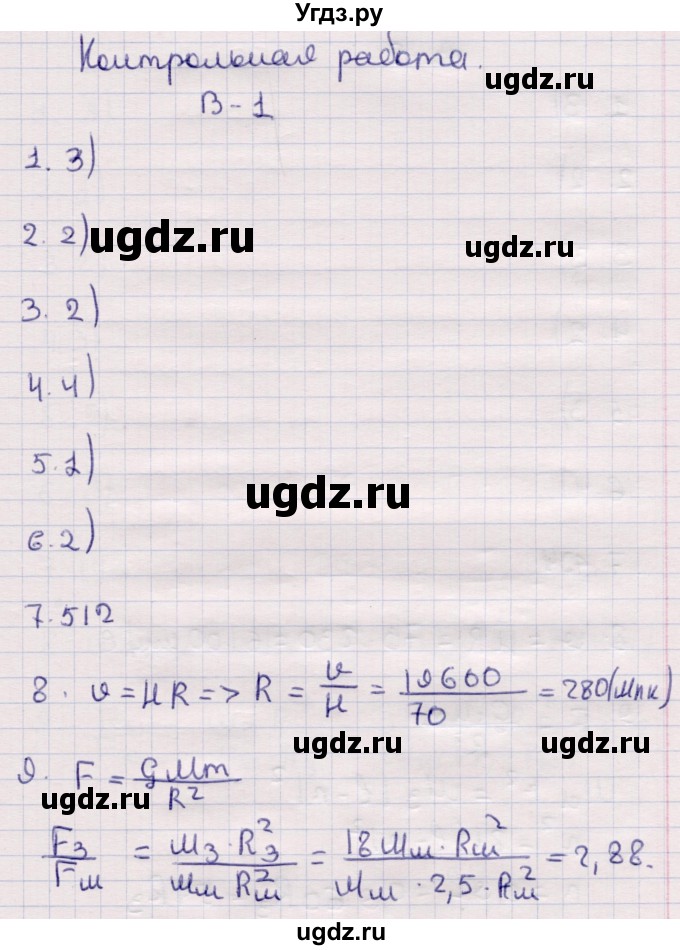 Угдз.ру
Контрольная работа.
ugdz.ru
В-1
1. 3)
2. 2)
ugdz.ru
ugdz.ru
3. 2)
ugdz.ru
4. 4)
5. 1)
ugdz.ru
6. 2)
7. 512
8. υ = HR => R = υ/H = 19600/70 = 280(Мпк)
ugdz.ru
ugdz.ru
9. F = GMm/R²
ugdz.ru
Fз/Fм = Mз · Rз²/Mм Rм² = 18 Mм · Rм²/Mм · 2,5 · Rм² = 2,88.
ugdz.ru